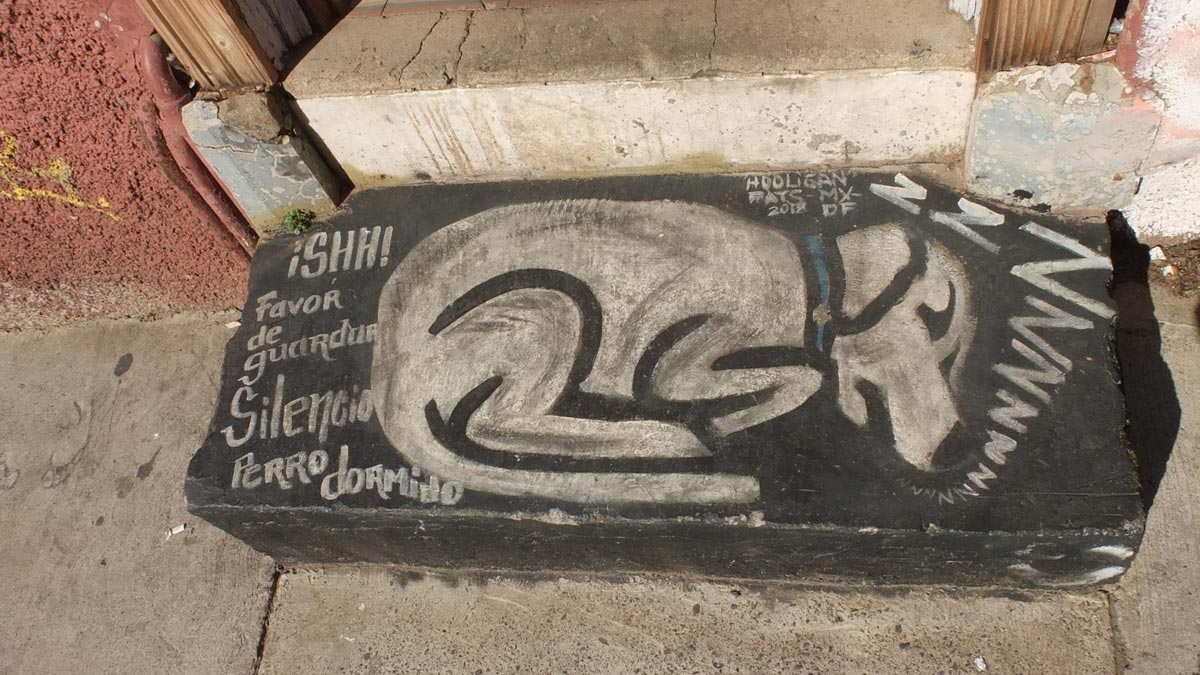 ¡SHH!
Favor
de
guardar
Silencio
PERRO dormido
HOOLIGAN
PATS MX-
2012 DF
NNNNNNNNNNN